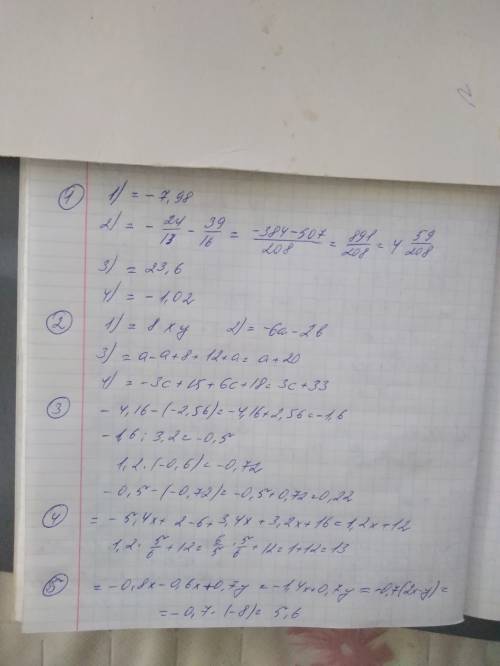 ① 1) = -7,98
2) = - 24/13 - 39/16 = -384-507/208 = 891/208 = 4 59/208
3) = 23,6
4) = -1,02
② 1) = 8xy 2) = -6a-2b
3) = a-a+8+12+a = a+20
4) = -3c+15+6c+18 = 3c+33
③ -4,16-(-2,56) = -4,16+2,56 = -1,6
-1,6 : 3,2 = -0,5
1,2·(-0,6) = -0,72
-0,5-(-0,72) = -0,5+0,72 = 0,22
④ = -5,4x+2-6+3,4x+3,2x+16 = 1,2x+12
1,2· 5/6 +12 = 6/5 · 5/6 +12 = 1+12 = 13
⑤ = -0,8x-0,6x+0,7y = -1,4x+0,7y = -0,7(2x-y) =
= -0,7·(-8) = 5,6